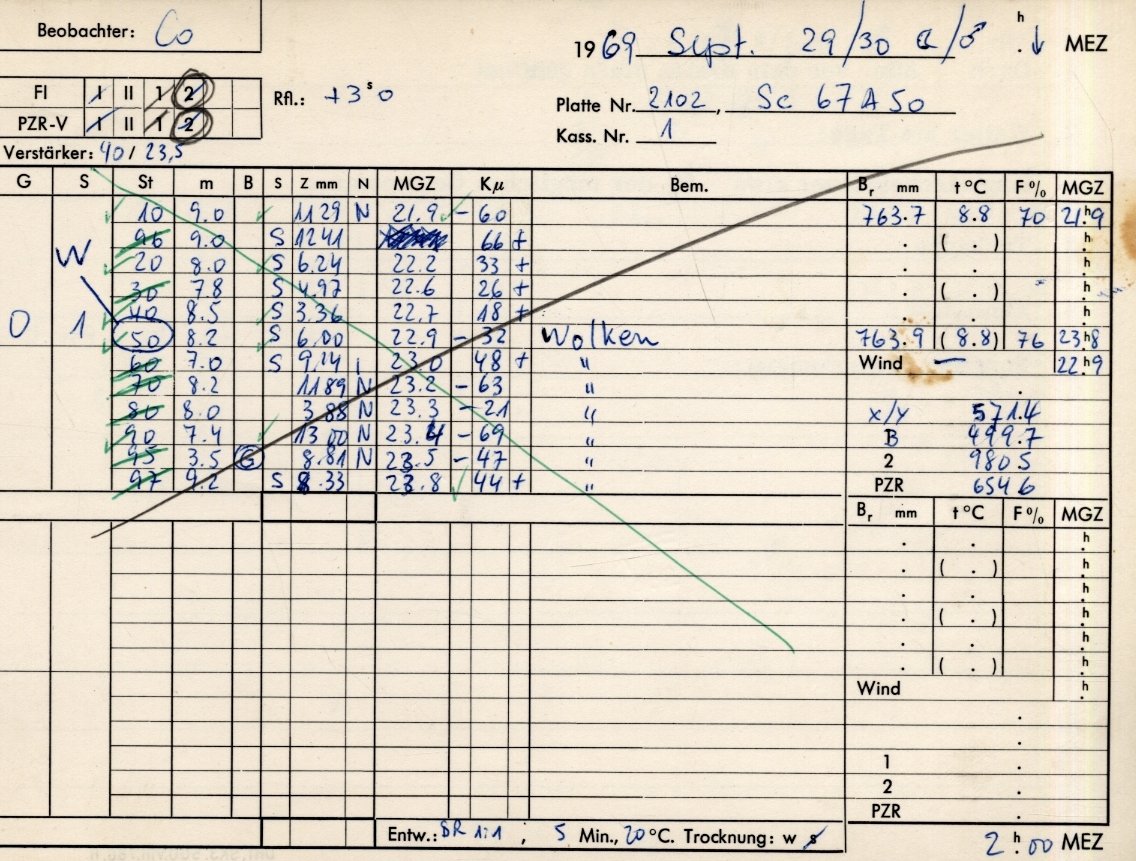 Beobachter: Co
1969 Sept. 29/30 h MEZ
FI I II 1 2
Rfl.: +3ˢ0
PZR-V I II 1 2
Platte Nr. 2102, Sc 67 A 50
Kass. Nr. 1
Verstärker: 40/23,5
G S St m B S Z mm N MGZ Kμ Bem. Br mm t °C F % MGZ
10 9.0 11 29 N 21.9 - 60 763.7 8.8 70 21.h9
96 9.0 S 12 41 66 + ( . ) h
W 20 8.0 S 6.24 22.2 33 + . . h
30 7.8 S 4.97 22.6 26 + . ( . ) h
40 8.5 S 3.36 22.7 18 + . . h
0 1 50 8.2 S 6.00 22.9 - 32 Wolken 763.9 (8.8) 76 23h8
60 7.0 S 9.14 23.0 48 + " Wind — 22.h9
70 8.2 11 89 N 23.2 - 63 "
80 8.0 3.88 N 23.3 - 21 " x/y 571.4
90 7.4 13 00 N 23.4 - 69 " B 499.7
95 3.5 G 8.81 N 23.5 - 47 " 2 980 5
97 9.2 S 8.33 23.8 44 + " PZR 654 6
Br mm t °C F % MGZ
. . h
. ( . ) h
. . h
. ( . ) h
. . h
. ( . ) h
Wind h
1 .
2 .
PZR .
Entw.: DR 1:1, 5 Min., 20 °C. Trocknung: w s
2 h 00 MEZ